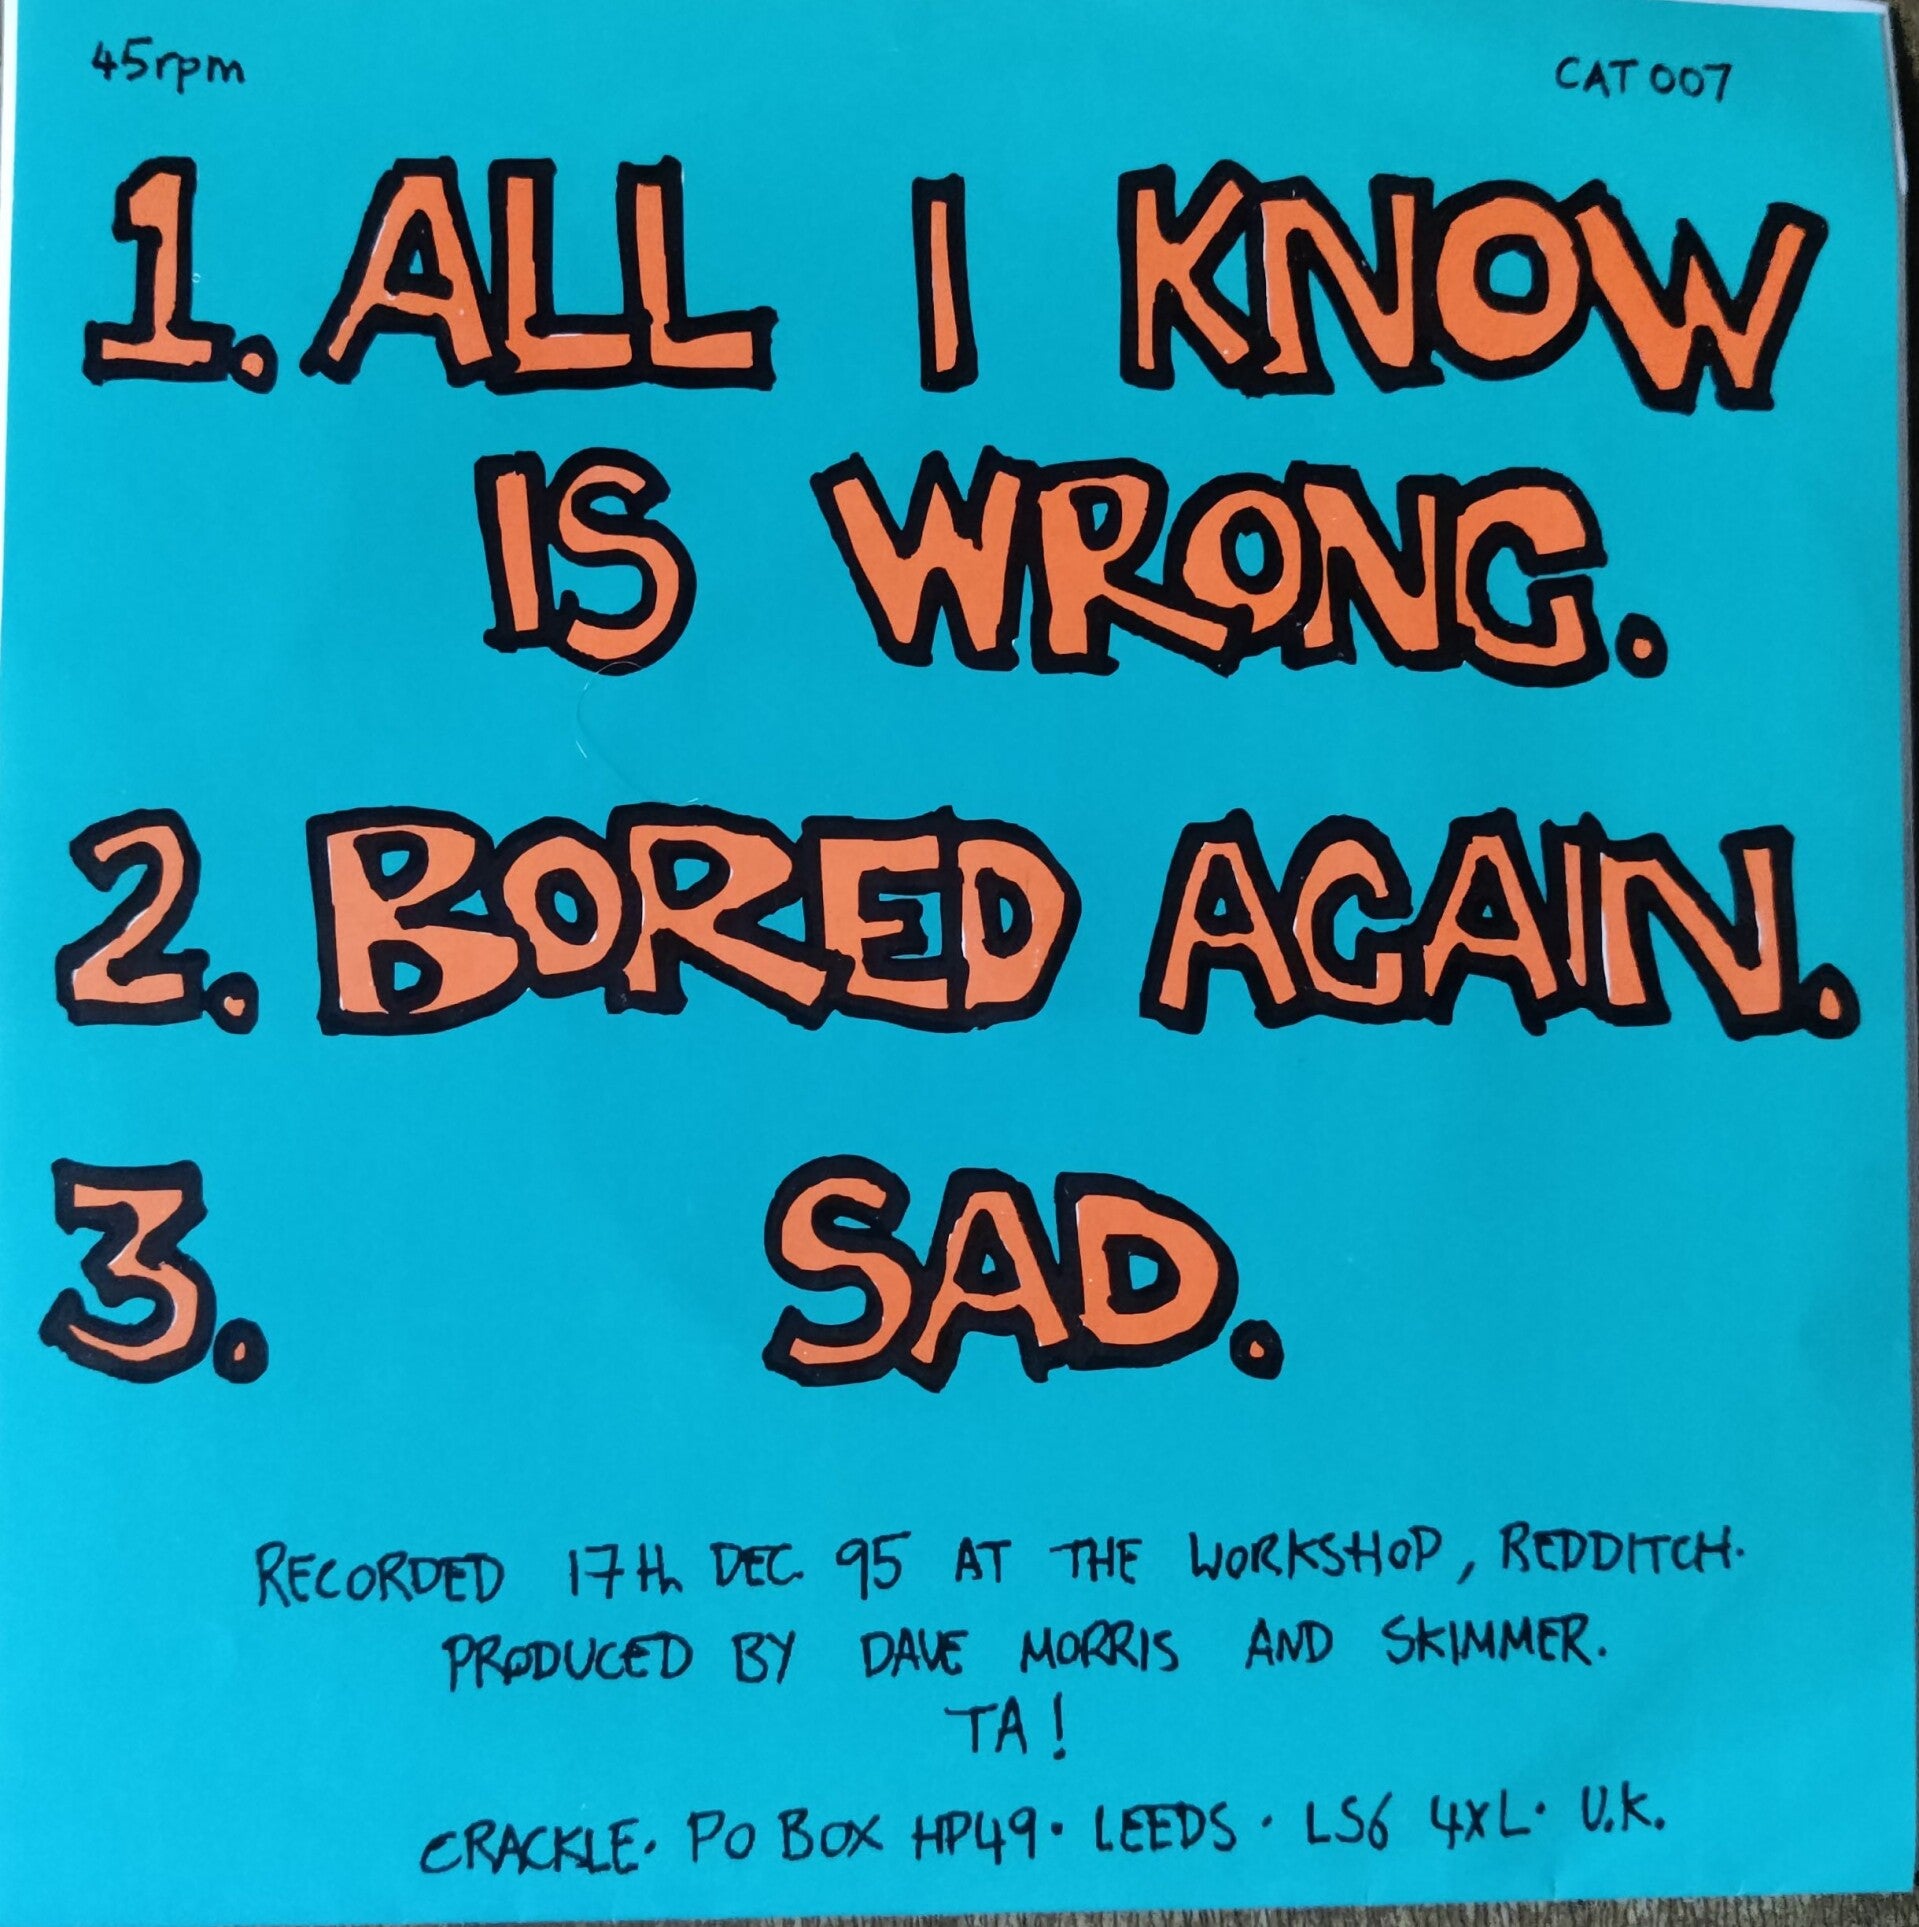 45rpm CAT 007
1. ALL I KNOW
IS WRONG.
2. BORED AGAIN.
3. SAD.
RECORDED 17th DEC. 95 AT THE WORKSHOP, REDDITCH.
PRODUCED BY DAVE MORRIS AND SKIMMER.
TA!
CRACKLE. PO BOX HP49. LEEDS. LS6 4XL. U.K.